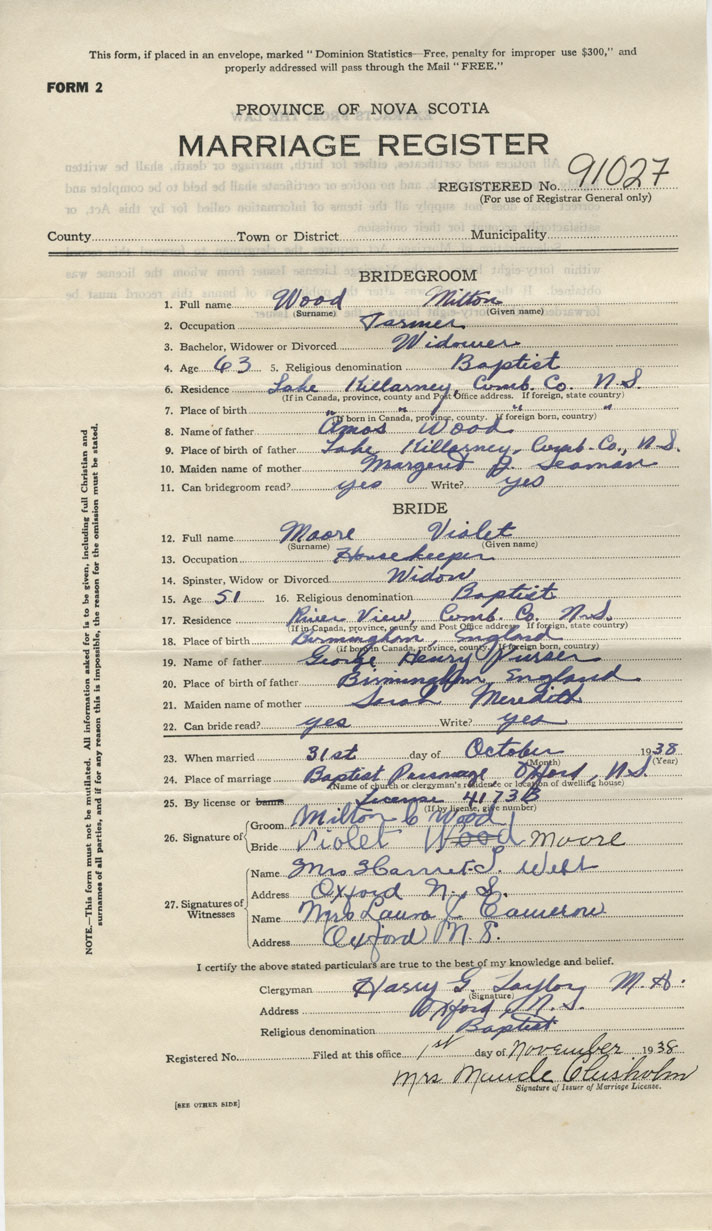 This form, if placed in an envelope, marked "Dominion Statistics—Free, penalty for improper use $300," and
properly addressed will pass through the Mail "FREE."
FORM 2
PROVINCE OF NOVA SCOTIA
MARRIAGE REGISTER
REGISTERED No. 91027
(For use of Registrar General only)
County Town or District Municipality
BRIDEGROOM
1. Full name Wood Milton
(Surname) (Given name)
2. Occupation Farmer
3. Bachelor, Widower or Divorced Widower
4. Age 63 5. Religious denomination Baptist
6. Residence Lake Killarney, Cumb. Co. N.S.
(If in Canada, province, county and Post Office address. If foreign, state country)
7. Place of birth " " " "
(If born in Canada, province, county. If foreign born, country)
8. Name of father Amos Wood
9. Place of birth of father Lake Killarney, Cumb. Co., N.S.
10. Maiden name of mother Margeret J. Seaman
11. Can bridegroom read? yes Write? yes
BRIDE
12. Full name Moore Violet
(Surname) (Given name)
13. Occupation Housekeeper
14. Spinster, Widow or Divorced Widow
15. Age 51 16. Religious denomination Baptist
17. Residence River View, Cumb. Co. N.S.
(If in Canada, province, county and Post Office address. If foreign, state country)
18. Place of birth Birmingham, England
(If born in Canada, province, county. If foreign born, country)
19. Name of father George Henry Purser
20. Place of birth of father Birmingham, England
21. Maiden name of mother Sarah Meredith
22. Can bride read? yes Write? yes
23. When married 31st day of October 1938
(Month) (Year)
24. Place of marriage Baptist Parsonage Oxford, N.S.
(Name of church or clergyman's residence or location of dwelling house)
25. By license or banns License 4173B
(If by license, give number)
26. Signature of Groom Milton C Wood
Bride Violet Wood Moore
27. Signatures of Witnesses Name Mrs Harriet S. Webb
Address Oxford N. S.
Name Mrs Laura L Cameron
Address Oxford N.S.
I certify the above stated particulars are true to the best of my knowledge and belief.
Clergyman Harry G. Taylor M.A.
(Signature)
Address Oxford, N.S.
Religious denomination Baptist
Registered No. Filed at this office 1st day of November 1938
Mrs Maude Chisholm
Signature of Issuer of Marriage License.
[SEE OTHER SIDE]
NOTE.—This form must not be mutilated. All information asked for is to be given, including full Christian and
surnames of all parties, and if for any reason this is impossible, the reason for the omission must be stated.